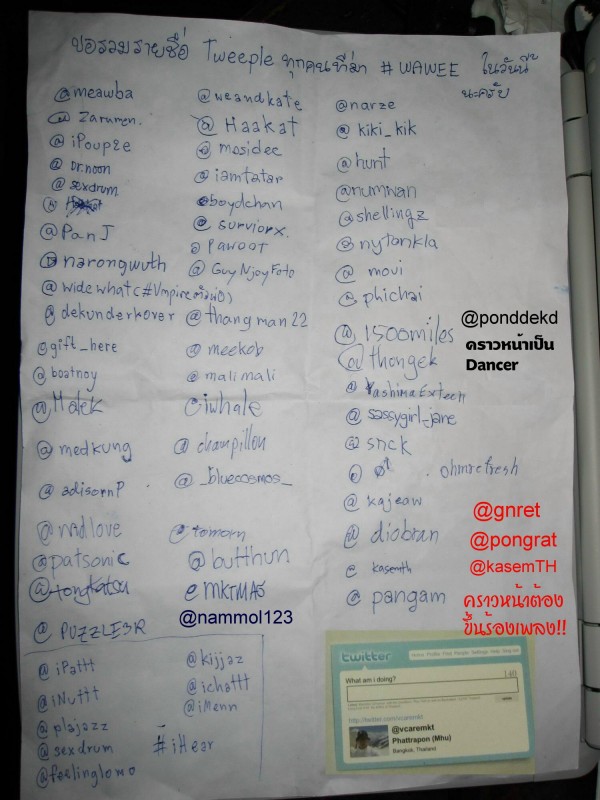 ขอรวมรายชื่อ Tweeple ทุกคนที่มา #WAWEE ในวันนี้
นะครับ
@meawba
@Zarumen.
@iPoup2e
@Dr.noon
@sexdrum
@PanJ
@narongwuth
@widewhat(#Vmpire
@dekunderkover
@gift_here
@boatnoy
@Malek
@medkung
@adisornP
@nidlove
@patsonic
@tongkatsu
@PUZZLE3R
@weandkate
@Haakat
@mosidec
@iamtatar
@boydchan
@surviorx.
@Pawoot
@GuyNjoyFoto
@thangman22
@meekob
@malimali
@iwhale
@champillon
@_bluecosmos_
@tomorn
@butthun
@MKTMAS
@nammol123
@narze
@kiki_kik
@hunt
@numwan
@shellingz
@nytonkla
@movi
@phichai
@1500miles
@thongek
@YashimaExtech
@sassygirl_jane
@snck
@ohmrefresh
@kajeaw
@diobran
@kasemth
@pangam
@ponddekd
คราวหน้าเป็น
Dancer
@gnret
@pongrat
@kasemTH
คราวหน้าต้อง
ขึ้นร้องเพลง!!
@iPattt
@iNuttt
@plajazz
@sexdrum
@feelinglomo
@kijjaz
@ichattt
@iMenn
#iHear
twitter
What am i doing?
140
http://twitter.com/vcaremkt
@vcaremkt
Phattrapon (Mhu)
Bangkok, Thailand